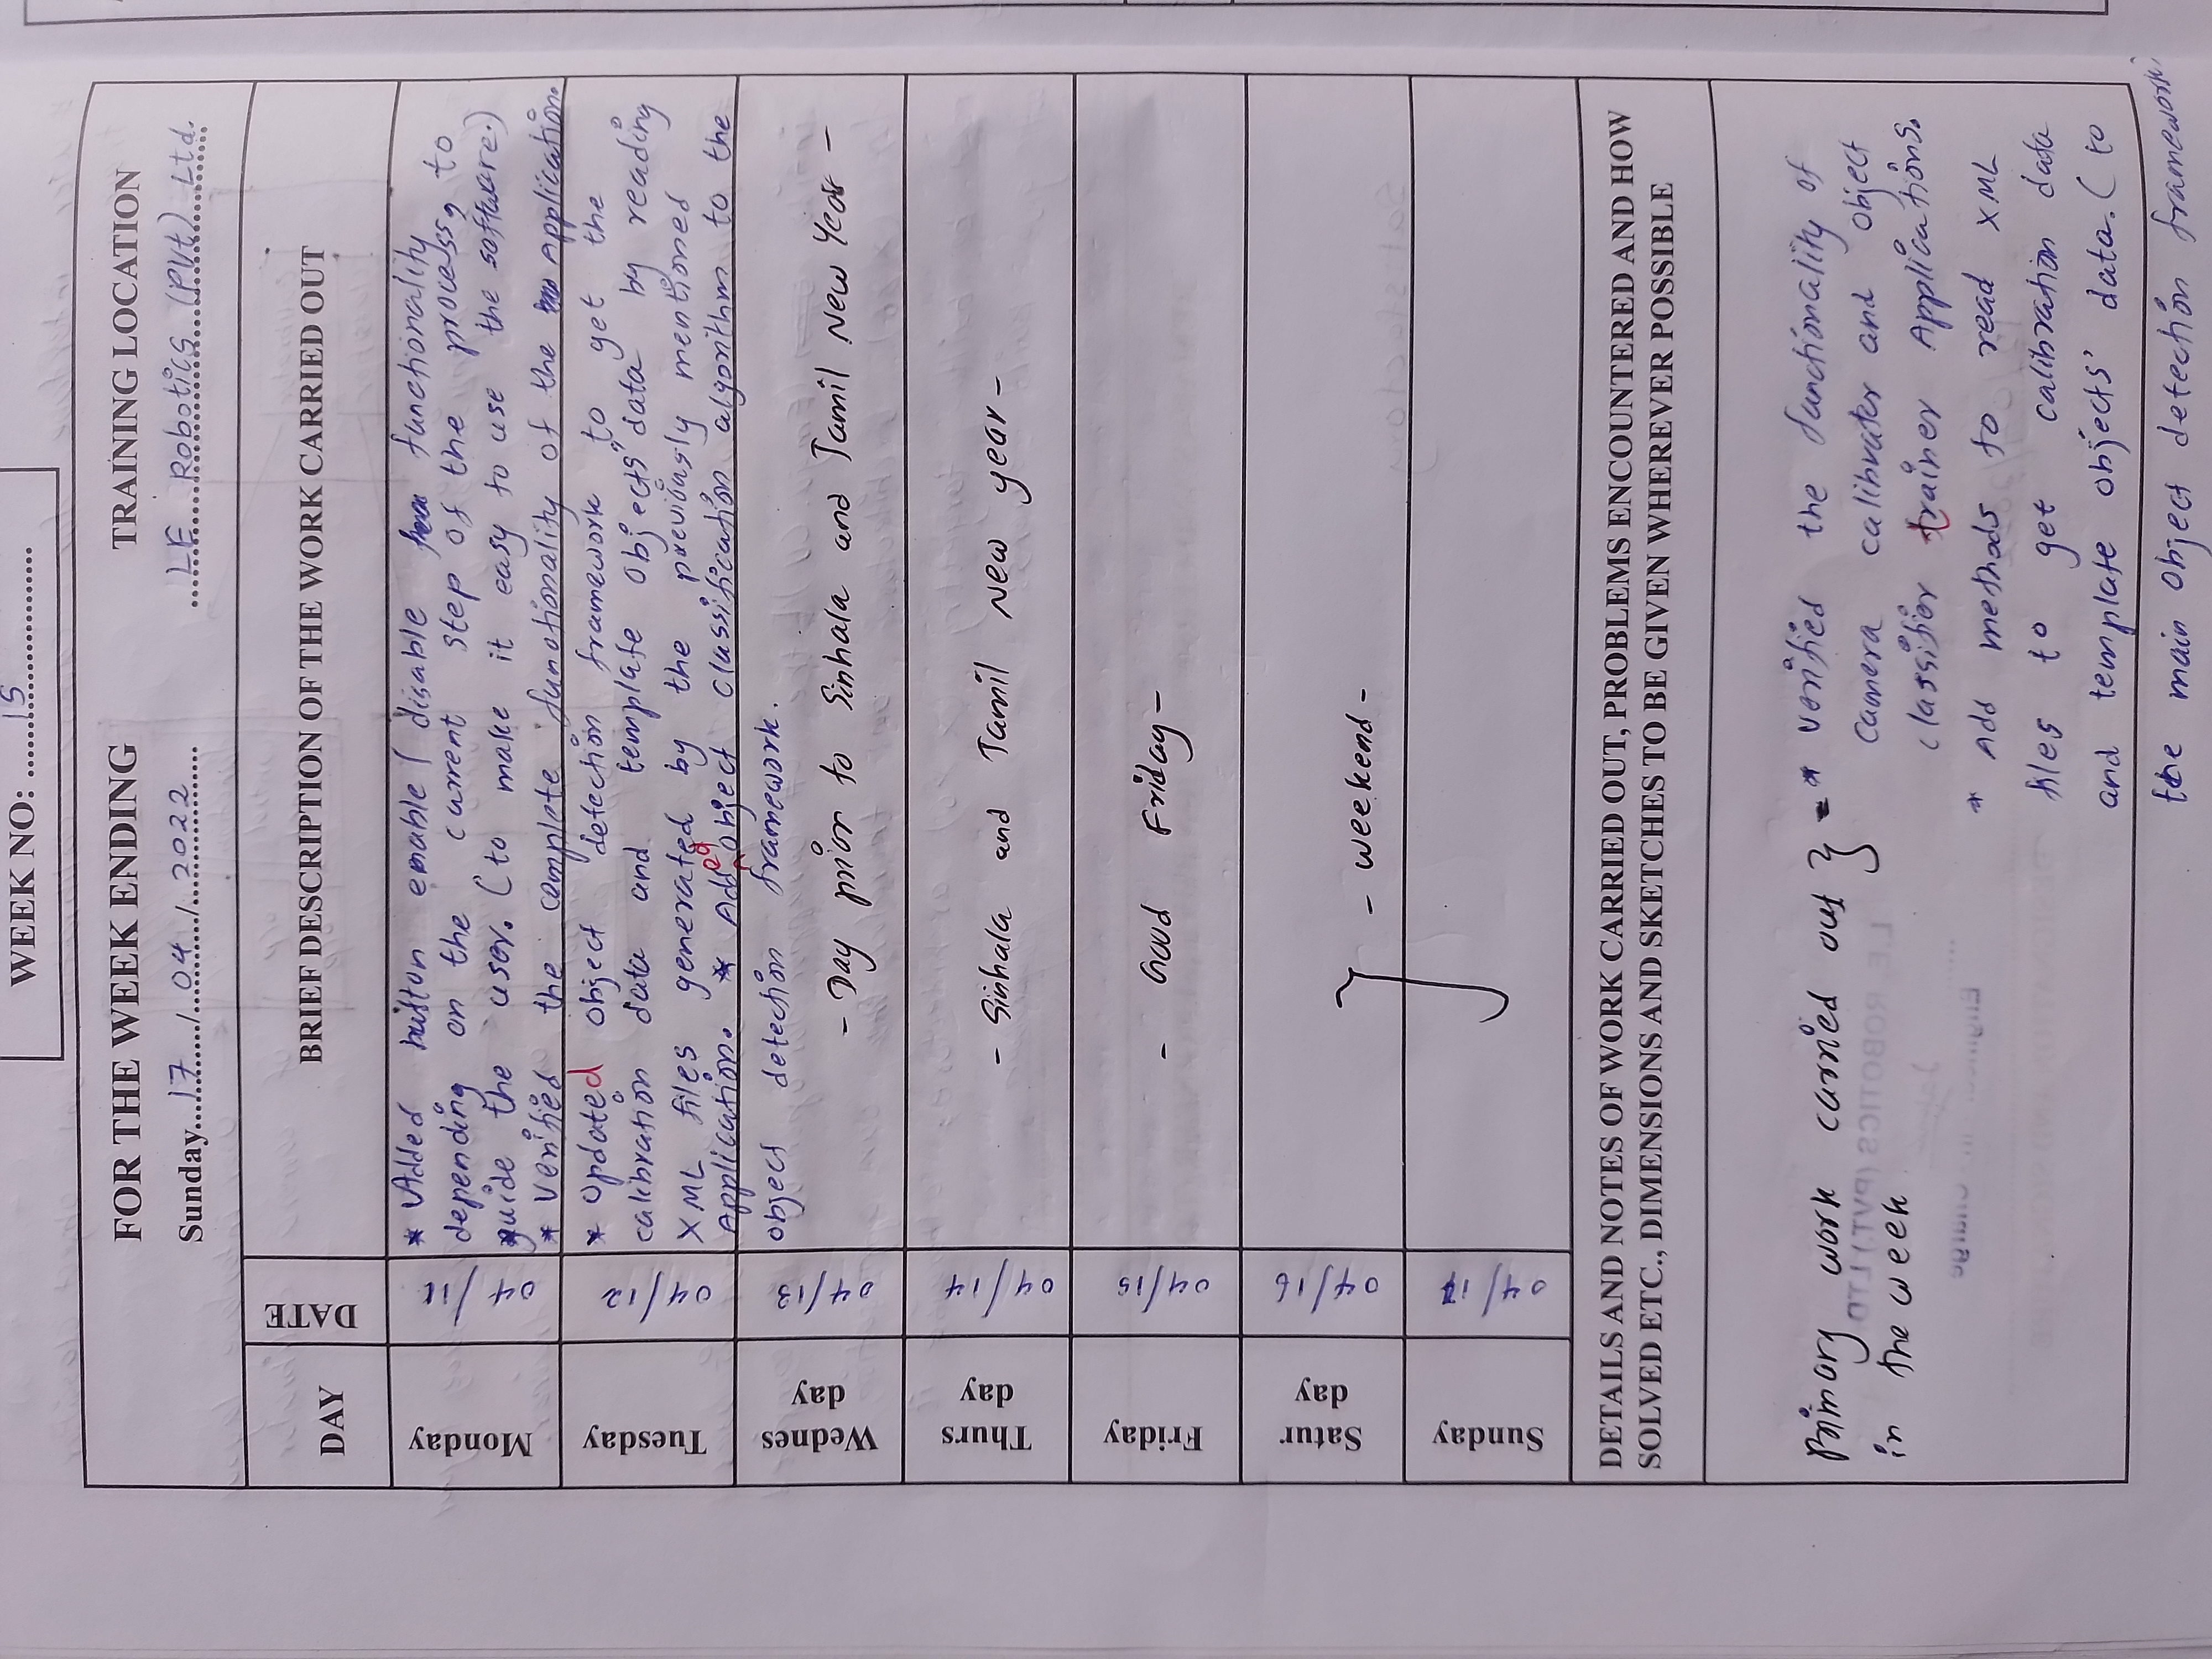 WEEK NO: 15
FOR THE WEEK ENDING
TRAINING LOCATION
Sunday 17 / 04 / 2022
LE Robotics (Pvt) Ltd.
DAY
DATE
BRIEF DESCRIPTION OF THE WORK CARRIED OUT
Monday
04/11
* Added button enable / disable functionality
depending on the current step of the process, to
guide the user. (to make it easy to use the software.)
* Verified the complete functionality of the Application.
Tuesday
04/12
* Updated object detection framework to get the
calibration data and template objects" data by reading
XML files generated by the previously mentioned
Application. * Added object classification algorithm to the
object detection framework.
Wednes
day
04/13
- Day prior to Sinhala and Tamil New Year -
Thurs
day
04/14
- Sinhala and Tamil New year -
Friday
04/15
- Good Friday -
Satur
day
04/16
} - weekend -
Sunday
04/17
DETAILS AND NOTES OF WORK CARRIED OUT, PROBLEMS ENCOUNTERED AND HOW
SOLVED ETC., DIMENSIONS AND SKETCHES TO BE GIVEN WHEREVER POSSIBLE
Primary work carried out } -
in the week
* Verified the functionality of
camera calibrater and object
classifier trainer Applications.
* Add methods to read XML
files to get calibration data
and template objects' data. (to
the main object detection framework)